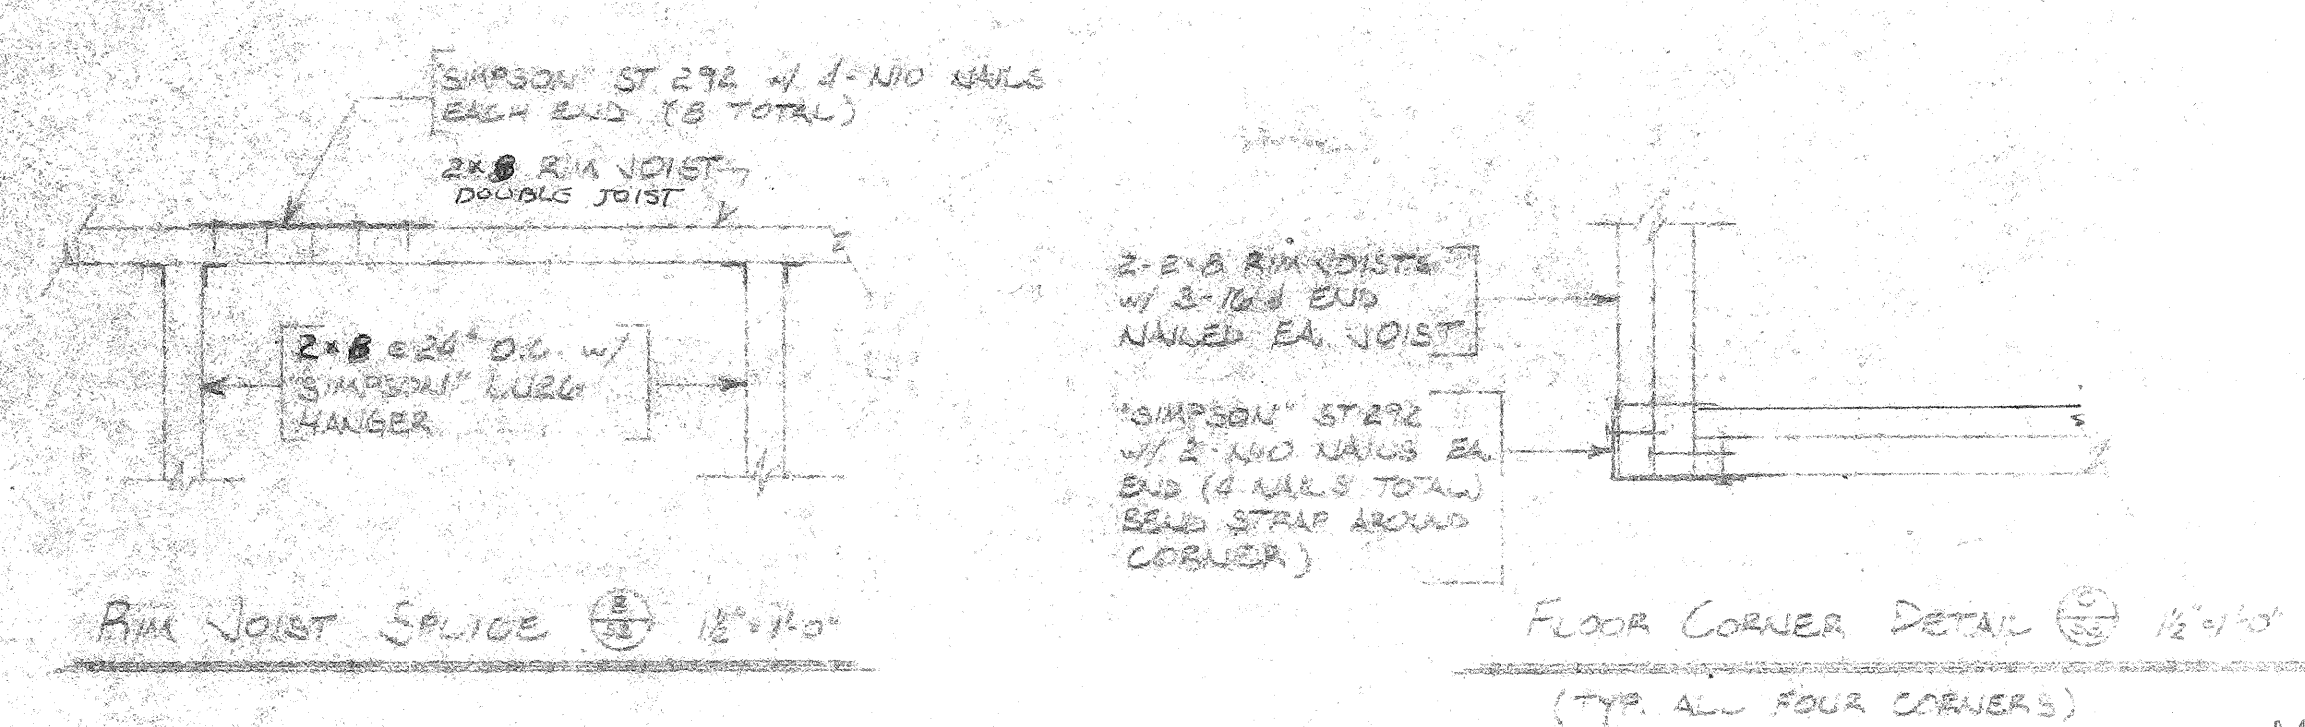 "SIMPSON" ST 292 w/ 4-N10 NAILS
EACH END (8 TOTAL)
2x8 RIM JOIST
DOUBLE JOIST
2x8 @ 24" O.C. w/
"SIMPSON" LU26
HANGER
RIM JOIST SPLICE B/S2 1½"=1'-0"
2-2x8 RIM JOISTS
w/ 3-16d END
NAILED EA. JOIST
"SIMPSON" ST292
w/ 2-N10 NAILS EA.
END (4 NAILS TOTAL)
BEND STRAP AROUND
CORNER)
FLOOR CORNER DETAIL C/S2 1½"=1'-0"
(TYP. ALL FOUR CORNERS)